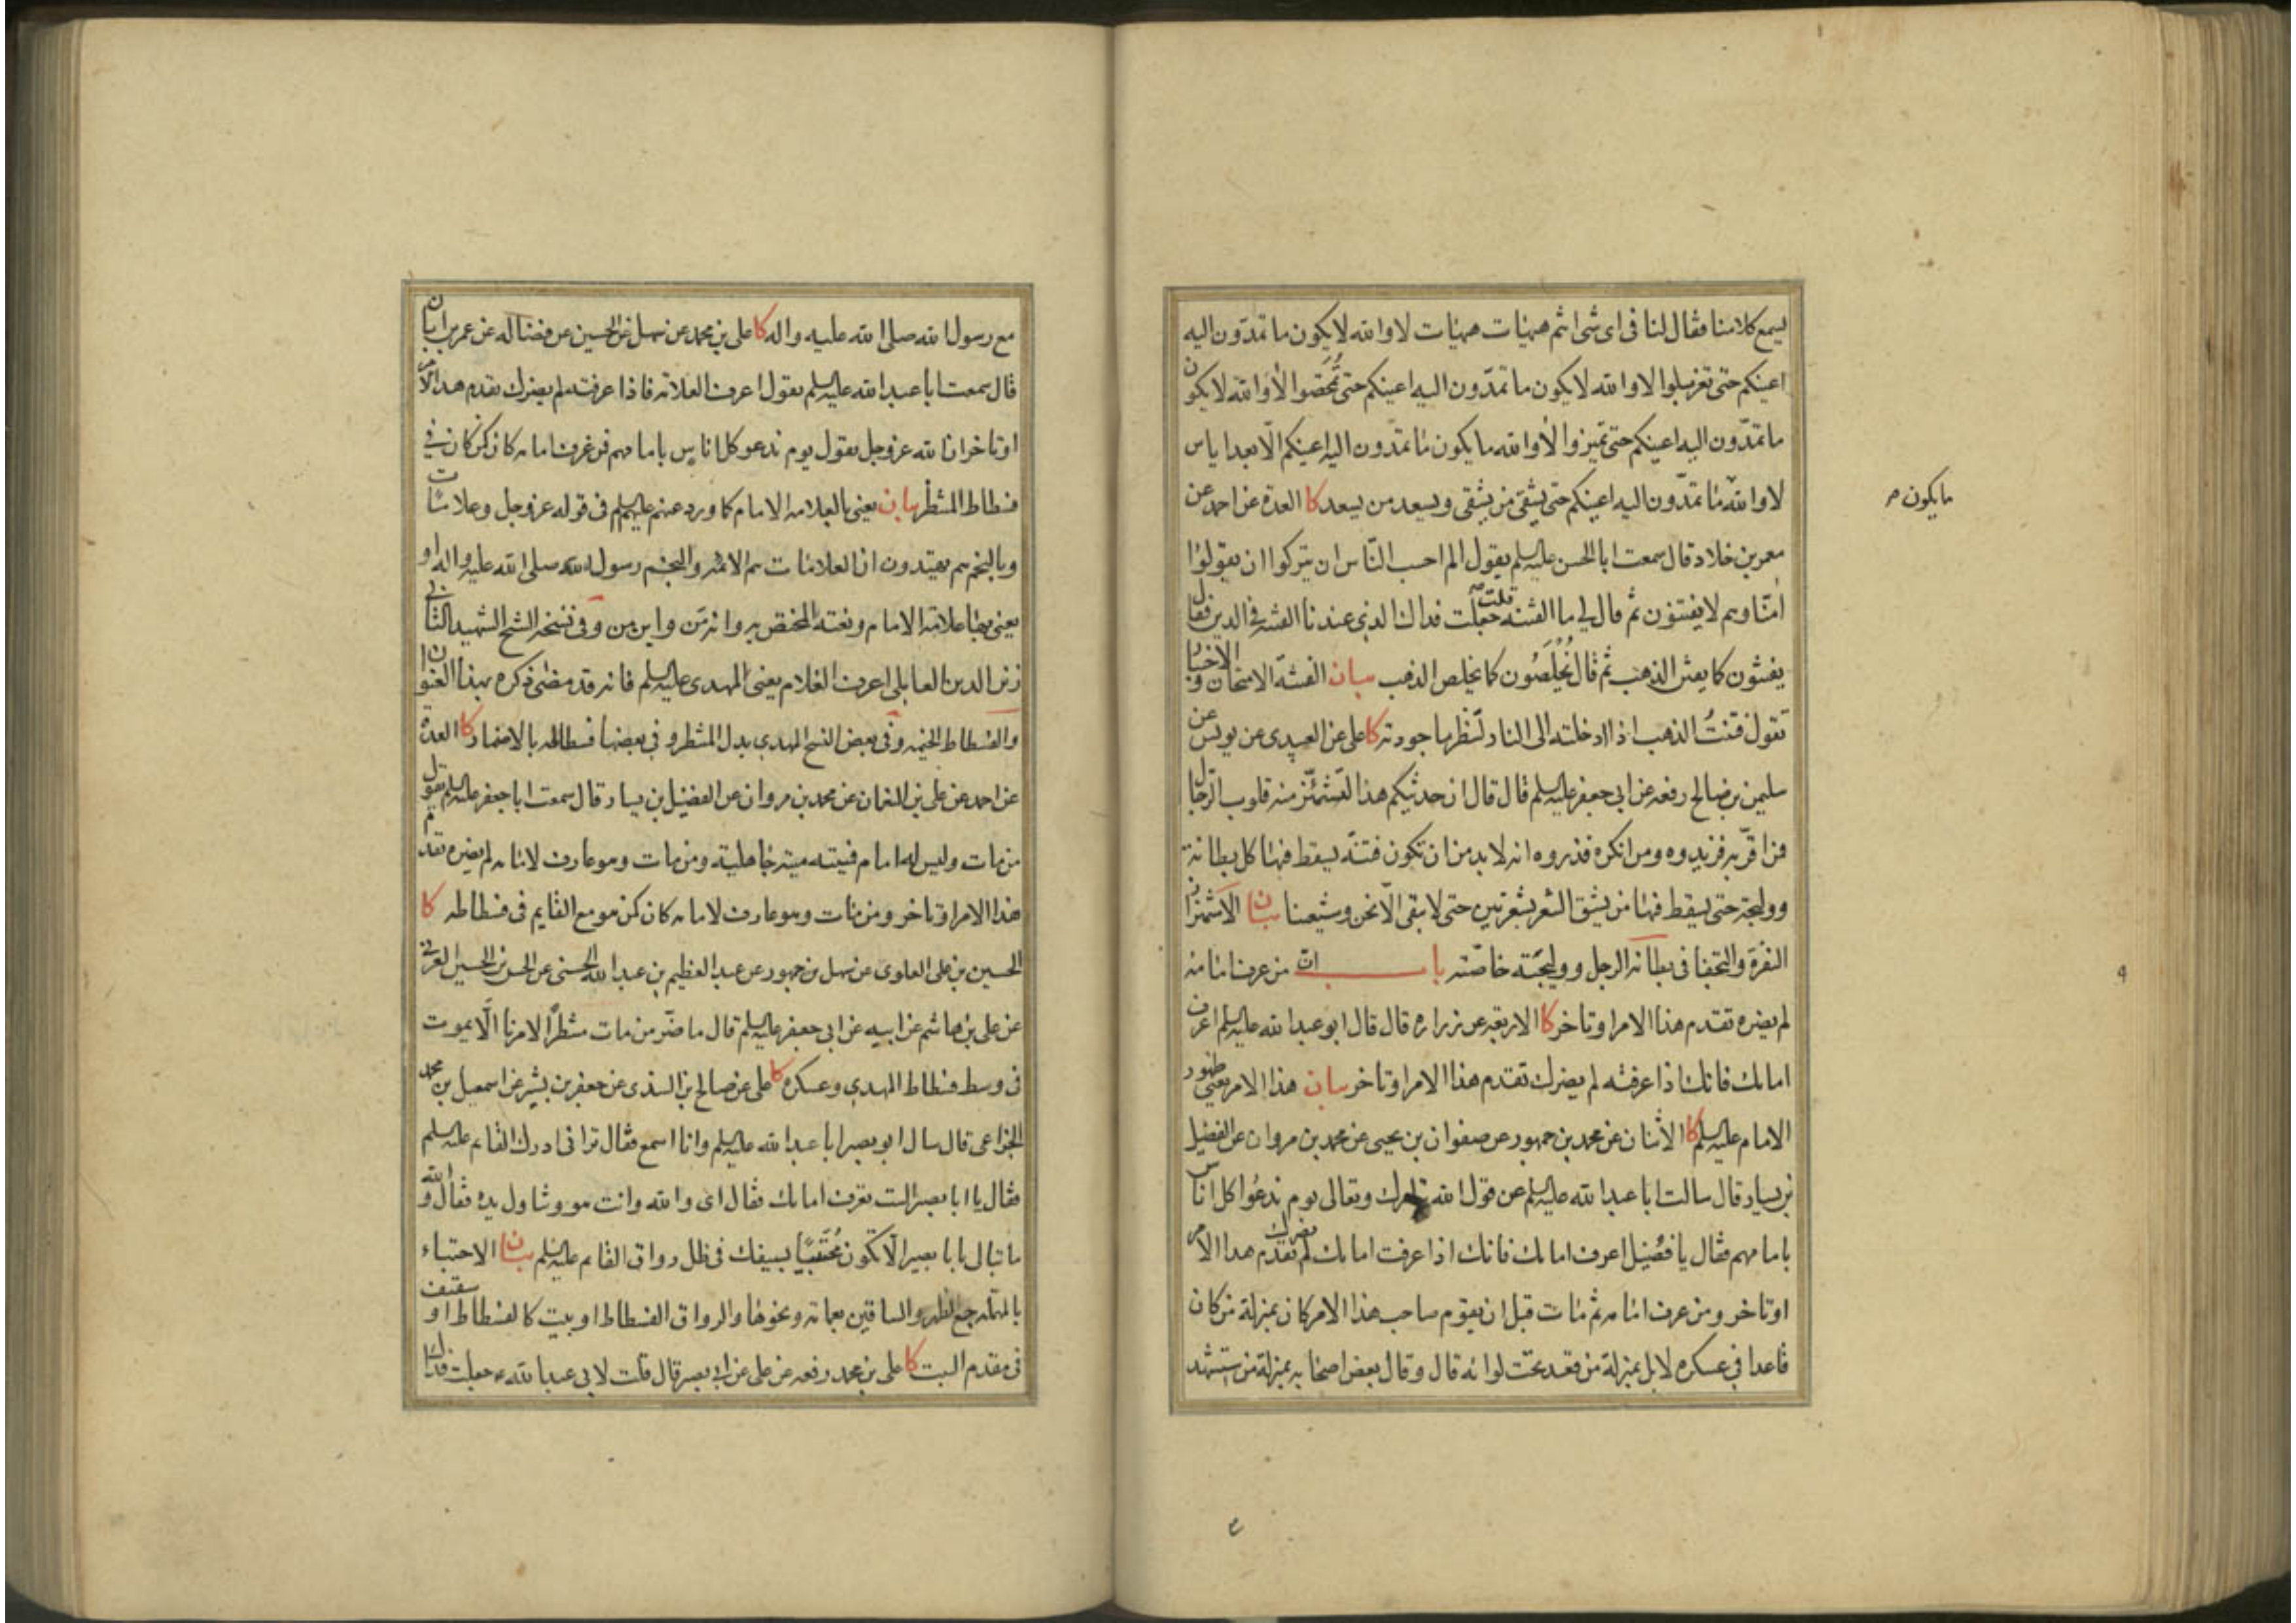 يسمع كلامنا فقال لنا فى اى شى انتم هيهات هيهات لا والله لا يكون ما تمدّون اليه
اعينكم حتى تغربلوا لا والله لا يكون ما تمدّون اليه اعينكم حتى تُمحَّصوا لا والله لا يكون
ما تمدّون اليه اعينكم حتى تميزوا لا والله ما يكون ما تمدّون اليه اعينكم الّا بعد اياس
لا والله ما تمدّون اليه اعينكم حتى يشقى من يشقى ويسعد من يسعد كا العدة عن احمد عن
ما يكون
معمر بن خلاد قال سمعت ابا الحسن عليه السلم يقول الم احسب النّاس ان يتركوا ان يقولوا
امنّا وهم لا يفتنون ثم قال لى ما الفتنه قلت جعلت فداك الذى عندنا الفتنه فى الدين فقال
يفتنون كما يفتن الذهب ثم قال يُخلَصُون كما يخلص الذهب بيان الفتنه الامتحان والاختبار
تقول فتنتُ الذهب اذا ادخلته الى النار لتنظر ما جودته كا على عن العبيدى عن يونس عن
سليمن بن صالح رفعه عن ابى جعفر عليه السلم قال قال ان حديثكم هذا لتشمئزّ منه قلوب الرّجال
فمن اقرّ به فزيدوه ومن انكره فذروه انه لا بد من ان تكون فتنة يسقط فيها كل بطانة
ووليجة حتى يسقط فيها من يشق الشعر بشعرتين حتى لا يبقى الّا نحن وشيعتنا بيان الاشمئزاز
النفرة والتجفا فى بطانة الرجل ووليجته خاصّته باب ان من عرف امامه
لم يضره تقدم هذا الامر او تاخر كا الاربعه عن زراره قال قال ابو عبد الله عليه السلم اعرف
امامك فانك اذا عرفته لم يضرك تقدم هذا الامر او تاخر بيان هذا الامر يعنى ظهور
الامام عليه السلم كا الاثنان عن محمد بن جمهور عن صفوان بن يحيى عن محمد بن مروان عن الفضيل
بن يسار قال سالت ابا عبد الله عليه السلم عن قول الله تبارك وتعالى يوم ندعوا كل اناس
بامامهم فقال يا فضيل اعرف امامك فانك اذا عرفت امامك لم يضرك تقدم هذا الامر
او تاخر ومن عرف امامه ثم مات قبل ان يقوم صاحب هذا الامر كان بمنزلة من كان
قاعدا فى عسكره لا بل بمنزلة من قعد تحت لوائه قال وقال بعض اصحابه بمنزلة من استشهد
مع رسول الله صلى الله عليه واله كا على بن محمد عن سهل عن الحسين عن فضاله عن عمر بن ابان
قال سمعت ابا عبد الله عليه السلم يقول اعرف العلامه فاذا عرفته لم يضرك تقدم هذا الامر
او تاخر ان الله عز وجل يقول يوم ندعو كل اناس بامامهم فمن عرف امامه كان كمن كان فى
فسطاط المنتظر بيان يعنى بالعلامه الامام كما ورد عنهم عليهم السلم فى قوله عز وجل وعلامات
وبالنجم هم يهتدون ان العلامات هم الائمه والنجم رسول الله صلى الله عليه واله او
يعنى بها علامة الامام ونعته المختص به وانه من واين من وفى نسخه الشيخ الشهيد الثانى
زين الدين العاملى اعرف الغلام يعنى المهدى عليه السلم فانه قد مضى ذكره بهذا العنوان
والفسطاط الخيمه وفى بعض النسخ المهدى بدل المنتظر وفى بعضها فسطاطه بالاضمار كا العدة
عن احمد عن على بن النعمان عن محمد بن مروان عن الفضيل بن يسار قال سمعت ابا جعفر عليه السلم يقول
من مات وليس له امام فميتته ميتة جاهلية ومن مات وهو عارف لامامه لم يضره تقدم
هذا الامر او تاخر ومن مات وهو عارف لامامه كان كمن هو مع القايم فى فسطاطه كا
الحسين بن على العلوى عن سهل بن جمهور عن عبد العظيم بن عبد الله الحسنى عن الحسن بن الحسين العرنى
عن على بن هاشم عن ابيه عن ابى جعفر عليه السلم قال ما ضّر من مات منتظرًا لامرنا الّا يموت
فى وسط فسطاط المهدى وعسكره كا على عن صالح بن السندى عن جعفر بن بشير عن اسمعيل بن محمد
الخزاعى قال سال ابو بصير ابا عبد الله عليه السلم وانا اسمع فقال ترانى ادرك القائم عليه السلم
فقال يا ابا بصير الست تعرف امامك فقال اى والله وانت هو وتناول يده فقال والله
ما تبالى يا ابا بصير الّا تكون مُحتَبيًا بسيفك فى ظل رواق القائم عليه السلم بيان الاحتباء
بالمهملة جمع الظهر والساقين بعمامة ونحوها والرواق الفسطاط او بيت كالفسطاط او سقف
فى مقدم البيت كا على بن محمد رفعه عن على عن ابى بصير قال قلت لابى عبد الله ع جعلت فداك